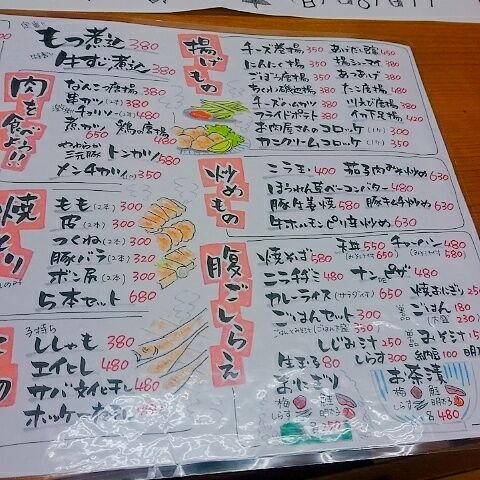 もつ煮込 380
牛すじ煮込 380
肉を食べよう!!
なんこつ唐揚 380
串カツ(2本) 380
チョリソー(2本) 380
煮カツ 450 鶏の唐揚 480
やわらか三元豚 トンカツ 580
メンチカツ(1ケ) 350
もも(2本) 300
皮(2本) 300
つくね(2本) 380
豚バラ(2本) 320
ボン尻(2本) 300
5本セット 680
子持ち
ししゃも 380
エイヒレ 480
サバ文化干し 480
揚げもの
チーズ唐揚 350
にんにく唐揚 350
ごぼう唐揚 380
ちくわ磯辺揚 380
チーズハムカツ 380
フライドポテト 380
お肉屋さんのコロッケ (1ケ) 300
カニクリームコロッケ (1ケ) 300
あげだし豆腐 450
揚シューマイ 380
あつあげ 380
たこ唐揚 480
川えび唐揚 380
イカ下足揚 420
炒めもの
ニラ玉 400
茄子肉みそ炒め 630
ほうれん草ベーコンバター 480
豚生姜焼 580
豚キムチ炒め 630
牛ホルモンピリ辛炒め 630
腹ごしらえ
焼そば 580
天丼 550
チャーハン 480
ニラチヂミ 480
ナンピザ 480
カレーライス(サラダ付) 650
焼おにぎり 250
ごはんセット 300
ごはん 180
(大盛) 230
しじみ汁 250
みそ汁 150
生たまご 80
しらす 300
納豆 100
おにぎり
梅 鮭
しらす 明太子
各 250
お茶漬
梅 鮭
しらす 明太子
各 480